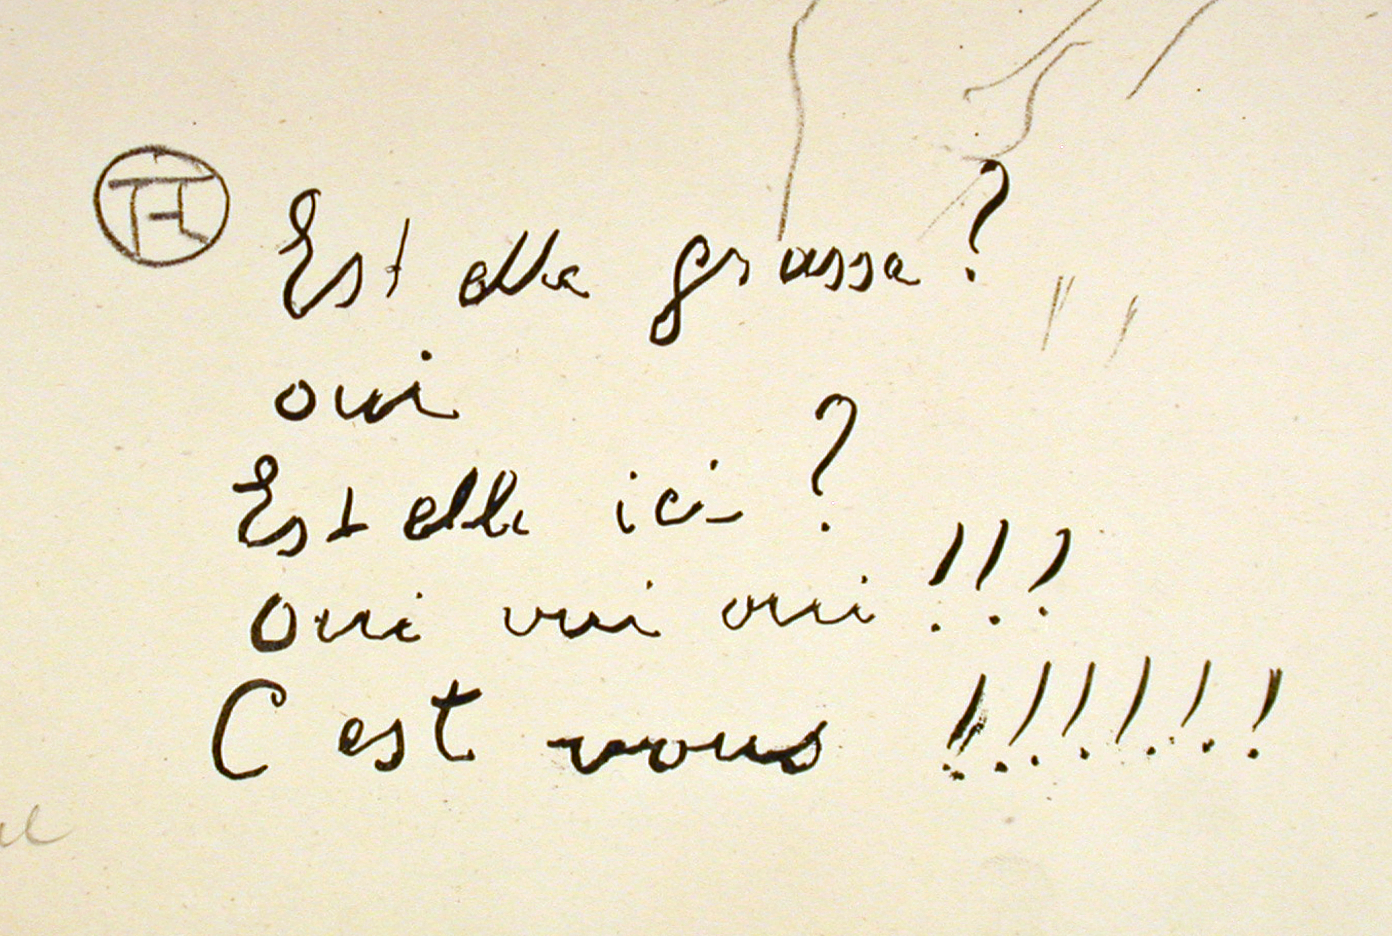 Est elle grasse ?
oui
Est elle ici ?
oui oui oui !!!
C est vous !!!!!!